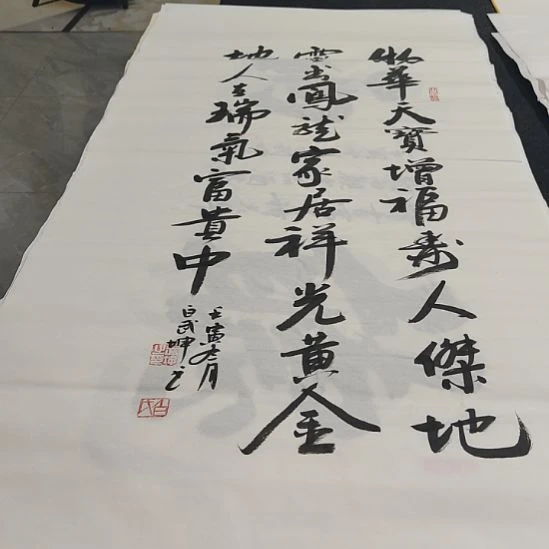 物華天寶增福壽人傑地
靈出鳳龍家居祥光黃金
地人在瑞氣富貴中
壬寅九月
白武坤书